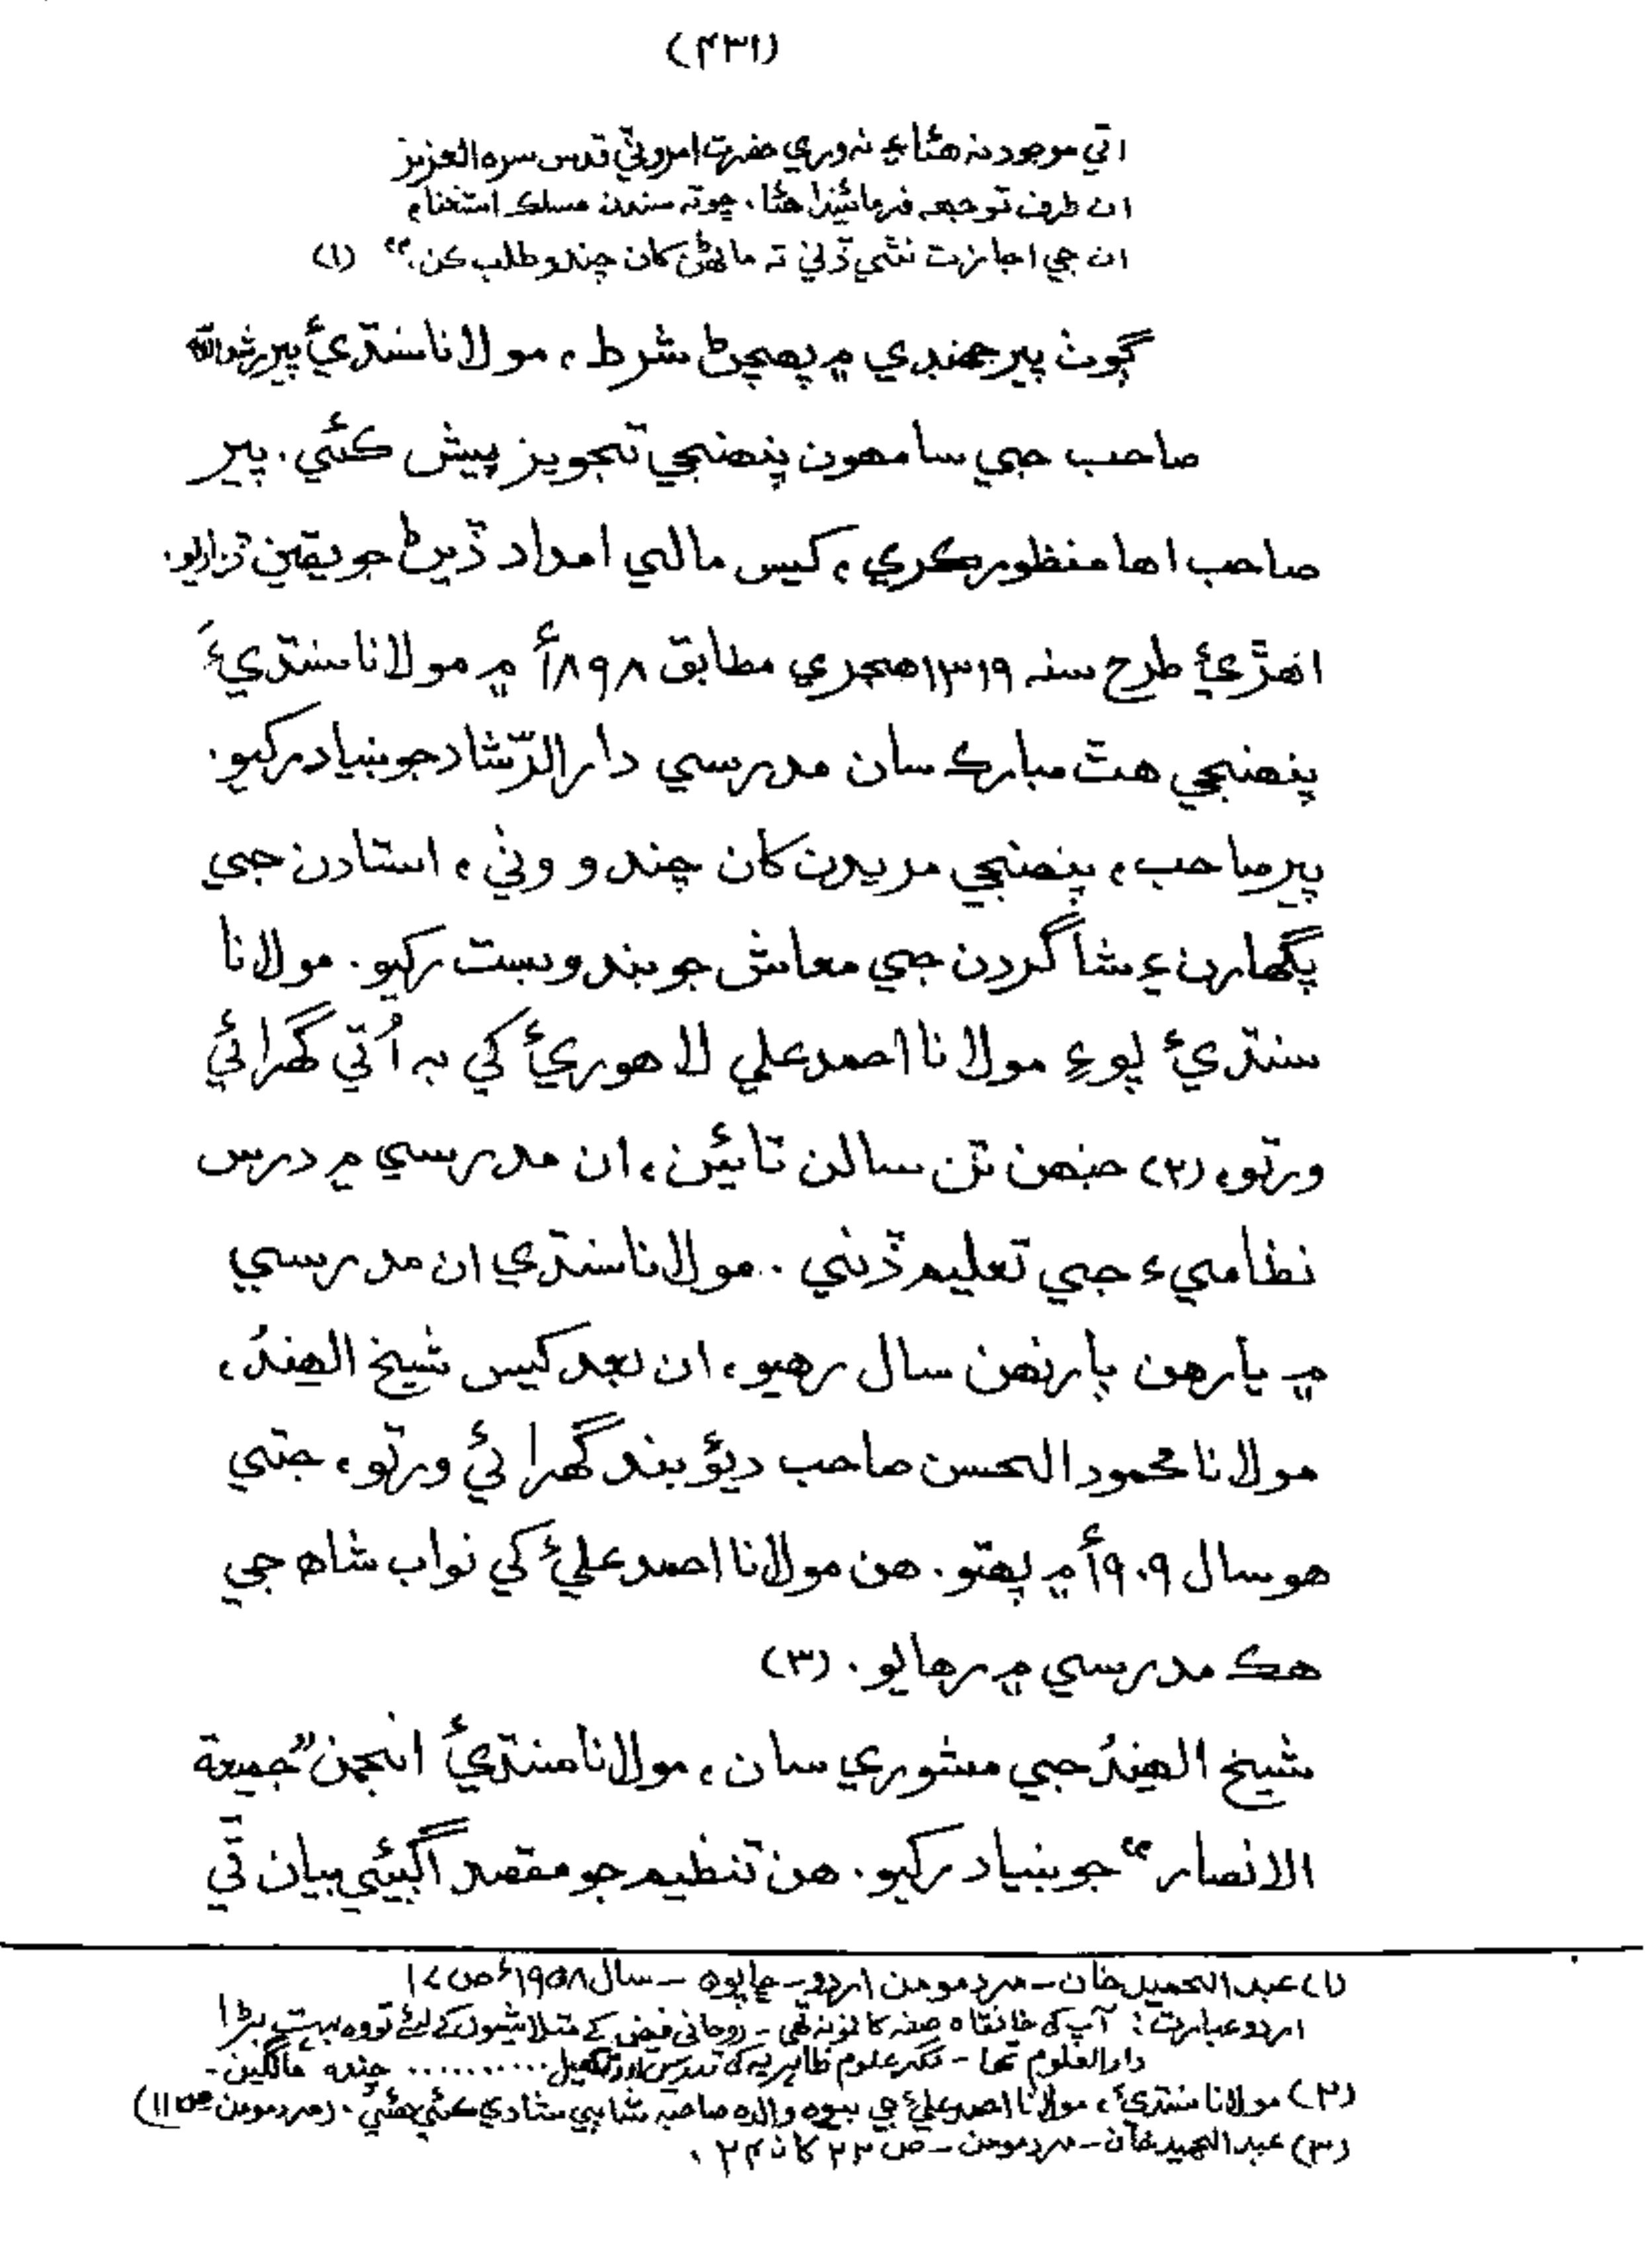 (۴۳۱)
اتي موجود نہ هئا ۽ نہ وري حضرت امروٽي قدس سره العزيز
ان طرف توجهه فرمائيندا هئا، ڇوتہ سندن مسلڪ استغنا،
ان جي اجازت نٿي ڏني تہ ماڻهن کان چندو طلب ڪن.“ (۱)
ڳوٺ پير جهنڊي ۾ پهچڻ شرط، مولانا سنڌيؒ پير رشدالله
صاحب جي سامهون پنهنجي تجويز پيش ڪئي. پير
صاحب اها منظور ڪري، کيس مالي امداد ڏيڻ جو يقين ڏياريو.
اهڙيءَ طرح سنہ ۱۳۱۹ هجري مطابق ۱۸۹۸ع ۾ مولانا سنڌيءَ
پنهنجي هٿ مبارڪ سان مدرسي دارالرّشاد جو بنياد رکيو.
پير صاحب، پنهنجي مريدن کان چندو وٺي، استادن جي
پگهارن ۽ شاگردن جي معاش جو بندوبست رکيو. مولانا
سنڌيؒ پوءِ مولانا احمد علي لاهوريؒ کي بہ اُتي گهرائي
ورتو، (۲) جنهن ٽن سالن تائين، ان مدرسي ۾ درس
نظاميءَ جي تعليم ڏني. مولانا سنڌي ان مدرسي
۾ يارهن ٻارنهن سال رهيو، ان بعد کيس شيخ الهندؒ،
مولانا محمود الحسن صاحب ديؤبند گهرائي ورتو، جتي
هو سال ۱۹۰۹ع ۾ پهتو. هن مولانا احمد عليؒ کي نواب شاهه جي
هڪ مدرسي ۾ رهايو. (۳)
شيخ الهندؒ جي مشوري سان، مولانا سنڌيؒ انجمن ”جميعة
الانصار“ جو بنياد رکيو. هن تنظيم جو مقصد اڳيئي بيان ٿي
(۱) عبدالحميد خان - مرد مومن اردو - ڇاپو ۵ - سال ۱۹۵۸ع ص ۱۷
اردو عبارت: آپ کی خانقاہ صفہ کا نمونہ تھی - روحانی فیض کے متلاشیوں کے لئے تو وہ بہت بڑا
دارالعلوم تھا - مگر علوم ظاہریہ کی تدریس اور تکمیل .......... چندہ مانگیں -
(۲) مولانا سنڌيؒ، مولانا احمد عليؒ جي بيوه والده صاحبہ سان ٻي شادي ڪئي هئي. (مرد مومن ص ۱۱)
(۳) عبدالحميد خان - مرد مومن - ص ۲۳ کان ۲۴.